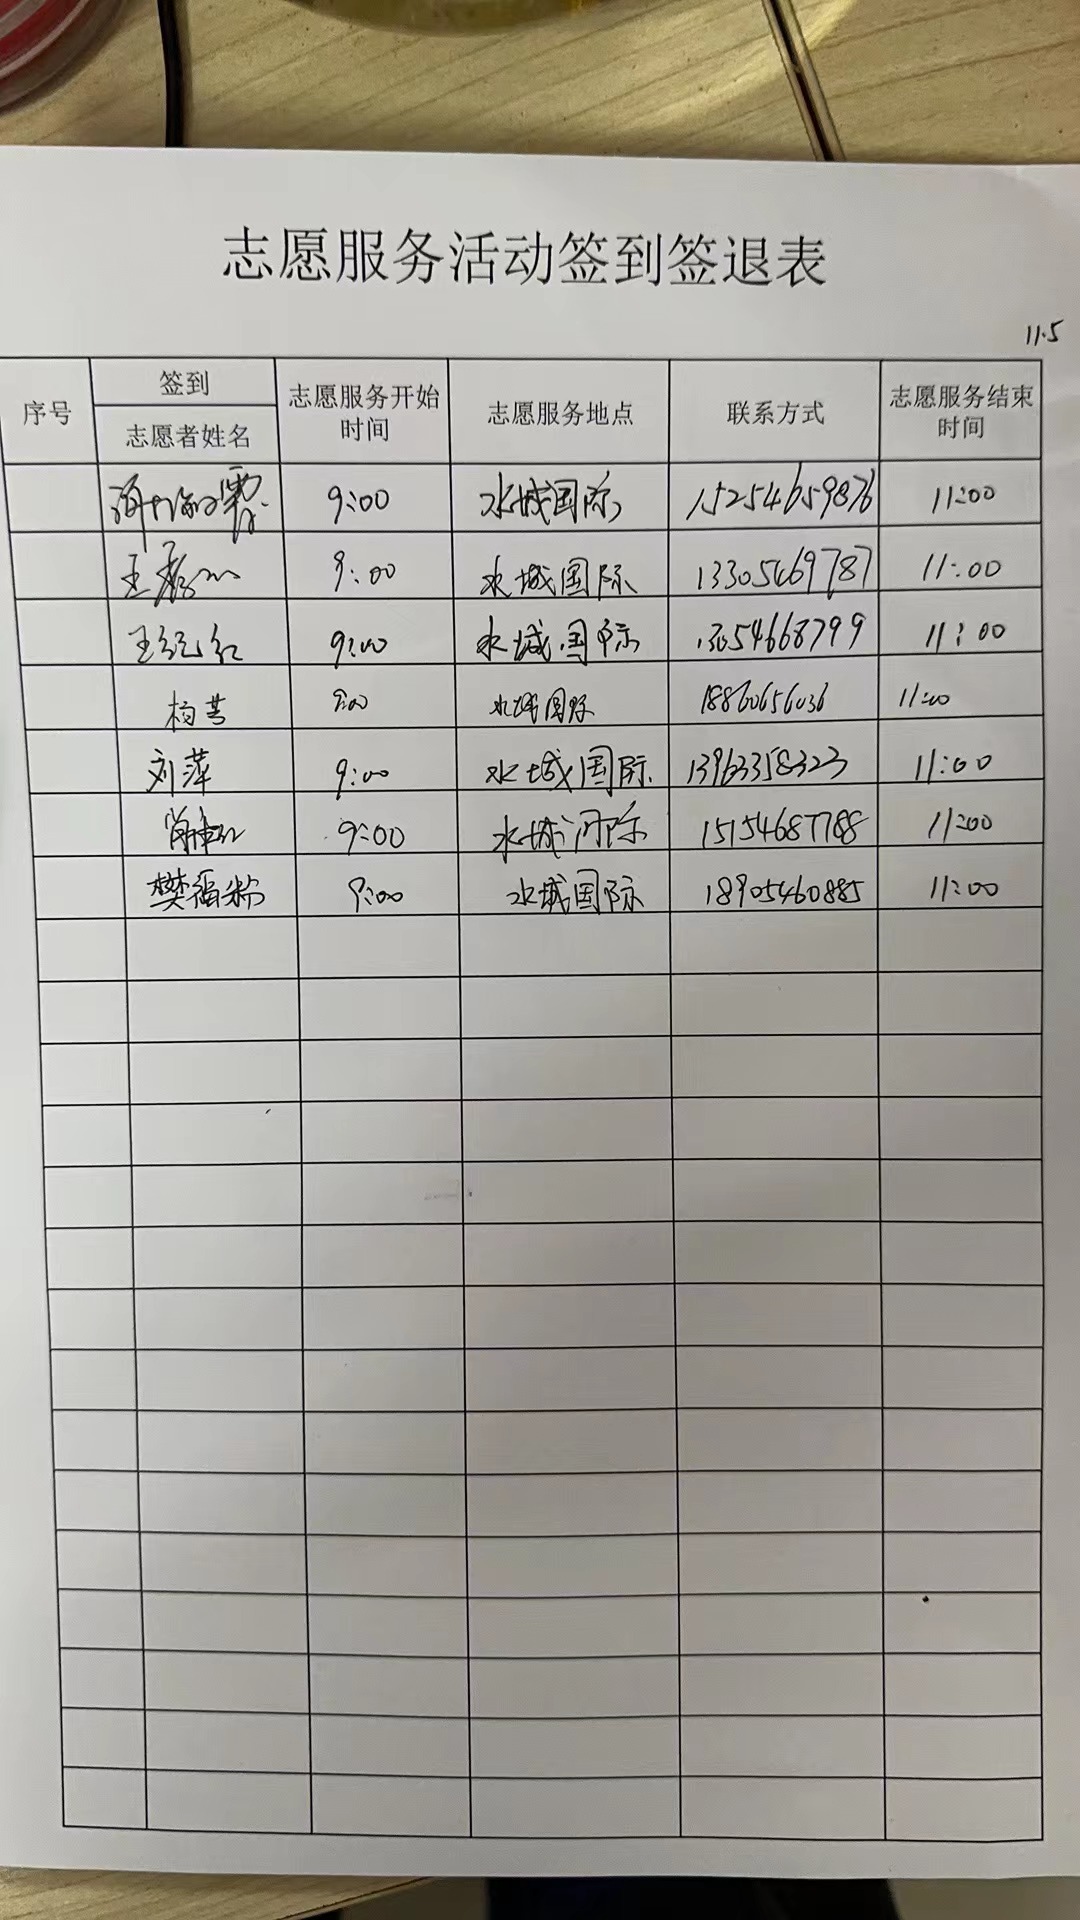 志愿服务活动签到签退表
11.5
序号 签到 志愿服务开始时间 志愿服务地点 联系方式 志愿服务结束时间
志愿者姓名
9:00 水城国际 15254659876 11:00
王 9:00 水城国际 13305469787 11:00
王纪红 9:00 水城国际 13054668799 11:00
杨芸 9:00 水城国际 18860656036 11:00
刘萍 9:00 水城国际 13963358323 11:00
9:00 水城国际 15154687788 11:00
樊福粉 9:00 水城国际 18905460885 11:00